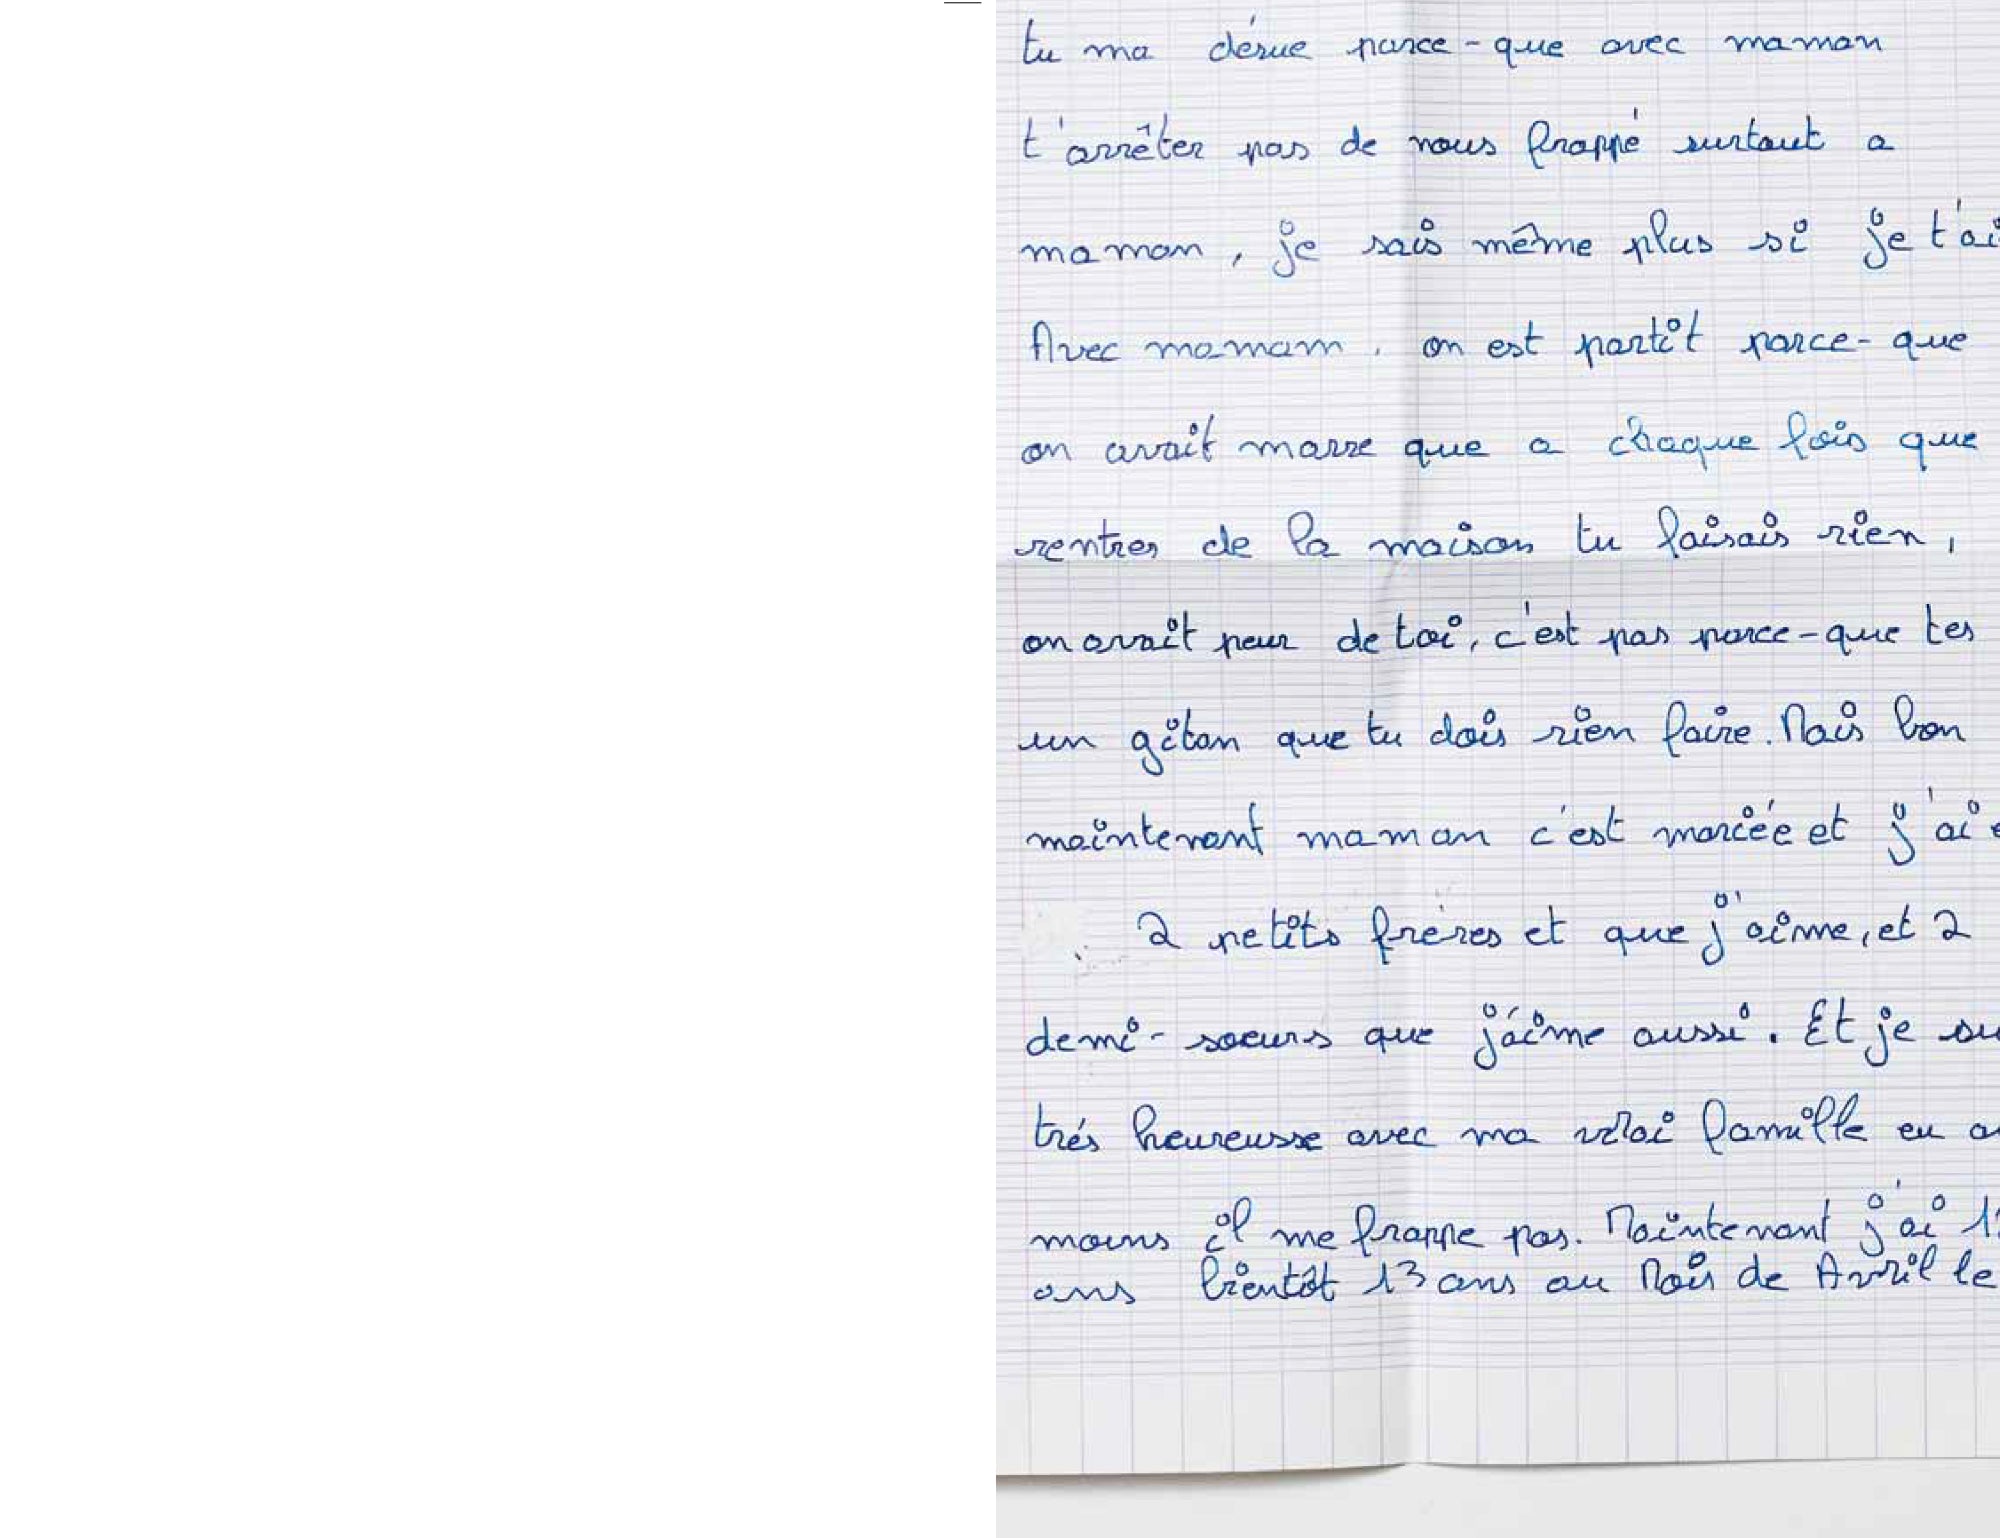 tu ma désue parce-que avec maman
t'arrêter pas de nous frappé surtout a
maman, je sais même plus si je t'ai
Avec mamam, on est partit parce-que
on avait marre que a chaque fois que
rentres de la maison tu faisais rien,
on avait peur de toi, c'est pas parce-que tes
un gitan que tu dois rien faire. Mais bon
maintenant maman c'est mariée et j'ai
2 petits fréres et que j'aime, et 2
demi-soeurs que j'aime aussi. Et je su
trés heureusse avec ma vrai famille eu a
moins il me frappe pas. Maintenant j'ai 1
ans bientôt 13 ans au Mois de Avril le